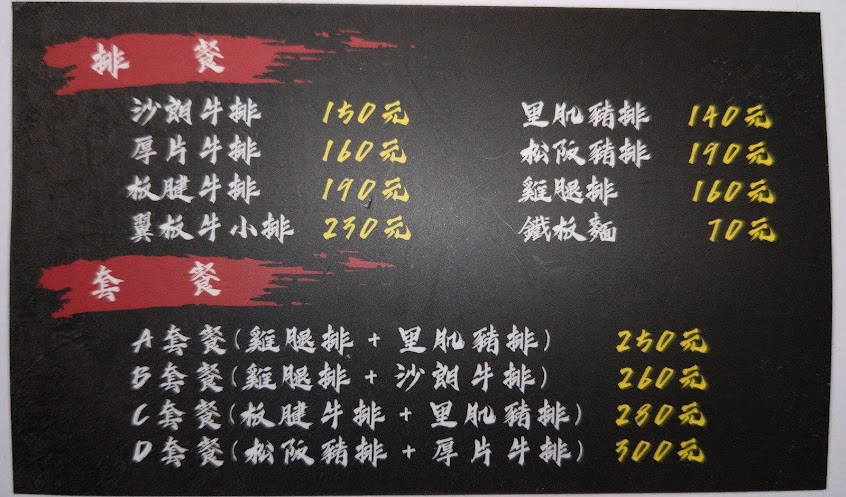 排 餐
沙朗牛排 150元 里肌豬排 140元
厚片牛排 160元 松阪豬排 190元
板腱牛排 190元 雞腿排 160元
翼板牛小排 230元 鐵板麵 70元
套 餐
A套餐(雞腿排 + 里肌豬排) 250元
B套餐(雞腿排 + 沙朗牛排) 260元
C套餐(板腱牛排 + 里肌豬排) 280元
D套餐(松阪豬排 + 厚片牛排) 300元